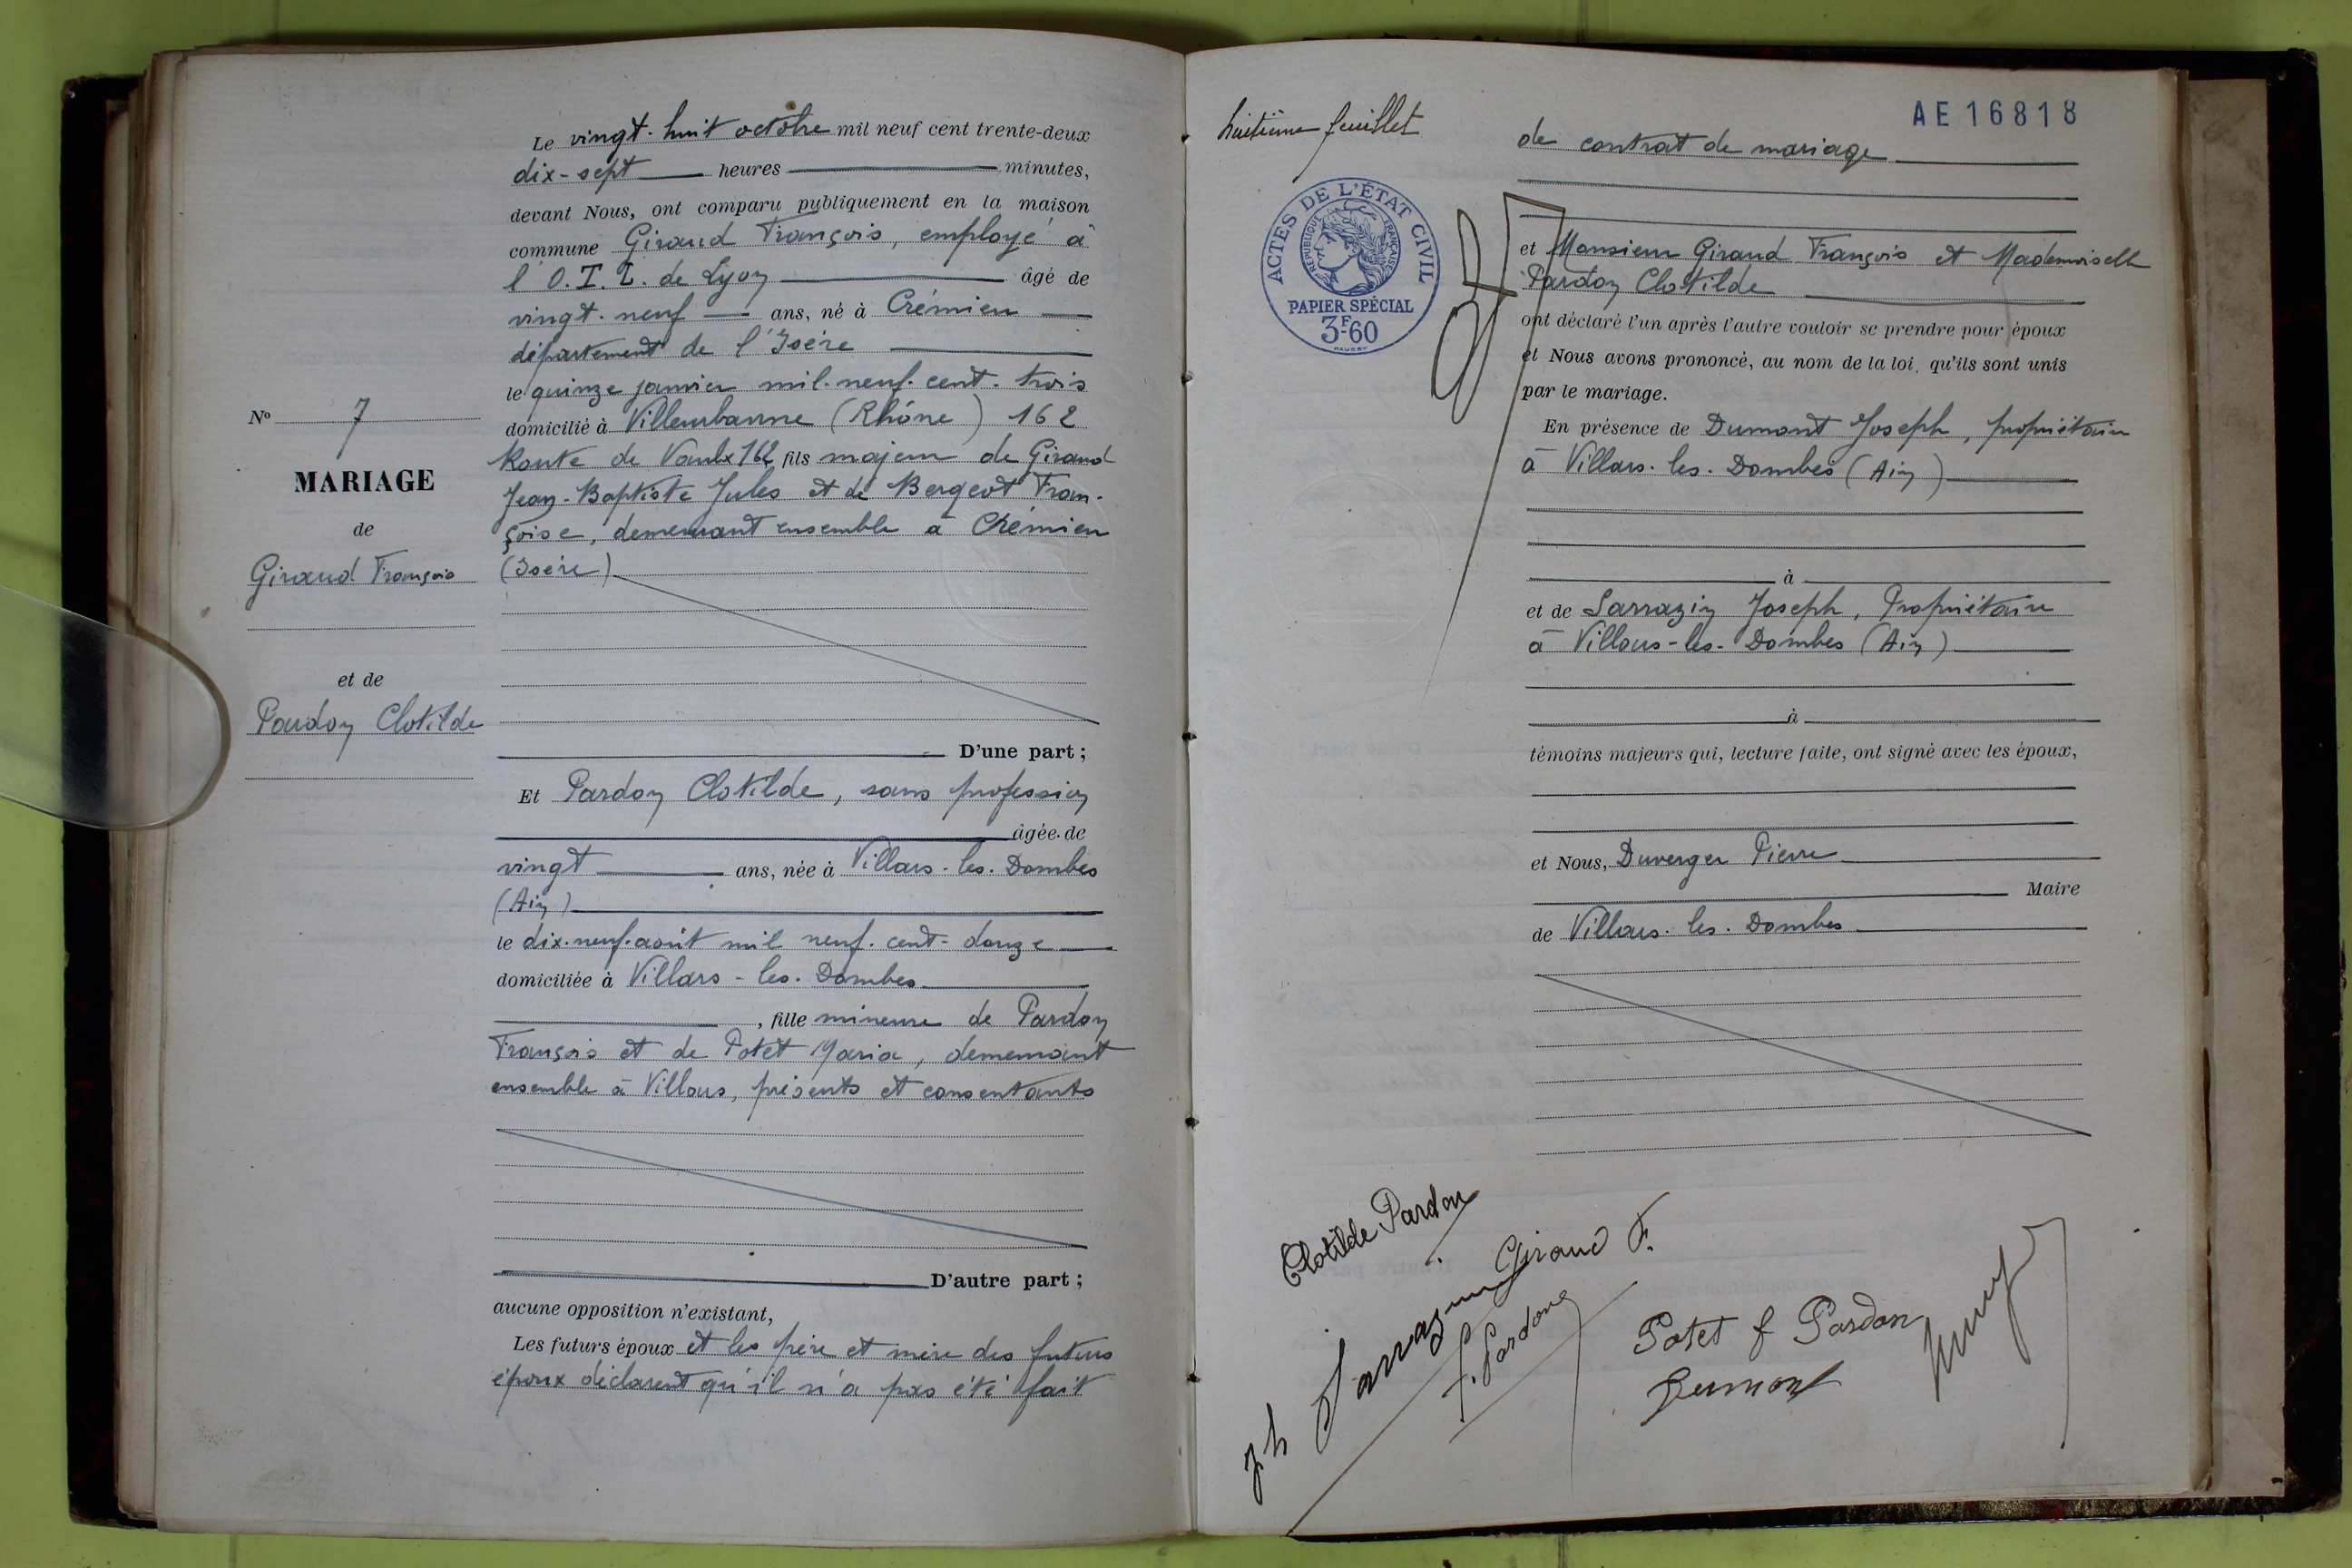 Le vingt-huit octobre mil neuf cent trente-deux
dix-sept heures minutes,
devant Nous, ont comparu publiquement en la maison
commune Giraud François, employé à
l'O.T.L. de Lyon âgé de
vingt-neuf ans, né à Crémieu
département de l'Isère
le quinze janvier mil-neuf-cent-trois
domicilié à Villeurbanne (Rhône) 162
Route de Vaulx 162 fils majeur de Giraud
Jean-Baptiste Jules et de Bergeot Fran-
çoise, demeurant ensemble à Crémieu
(Isère)
D'une part ;
Et Pardon Clotilde, sans profession
âgée de
vingt ans, née à Villars-les-Dombes
(Ain)
le dix-neuf-août mil neuf-cent-douze
domiciliée à Villars-les-Dombes
, fille mineure de Pardon
François et de Potet Maria, demeurant
ensemble à Villars, présents et consentants
D'autre part ;
aucune opposition n'existant,
Les futurs époux et les père et mère des futurs
époux déclarent qu'il n'a pas été fait
No 7
MARIAGE
de
Giraud François
et de
Pardon Clotilde
huitième feuillet
AE16818
ACTES DE L'ÉTAT CIVIL
RÉPUBLIQUE FRANÇAISE
PAPIER SPÉCIAL
3F60
de contrat de mariage
et Monsieur Giraud François et Mademoiselle
Pardon Clotilde
ont déclaré l'un après l'autre vouloir se prendre pour époux
et Nous avons prononcé, au nom de la loi, qu'ils sont unis
par le mariage.
En présence de Dumont Joseph, propriétaire
à Villars-les-Dombes (Ain)
à
et de Sarrazin Joseph, Propriétaire
à Villars-les-Dombes (Ain)
à
témoins majeurs qui, lecture faite, ont signé avec les époux,
et Nous, Duverger Pierre
Maire
de Villars-les-Dombes
Clotilde Pardon
Giraud F.
Jh Sarrazin
F. Pardon
Potet f Pardon
Dumont